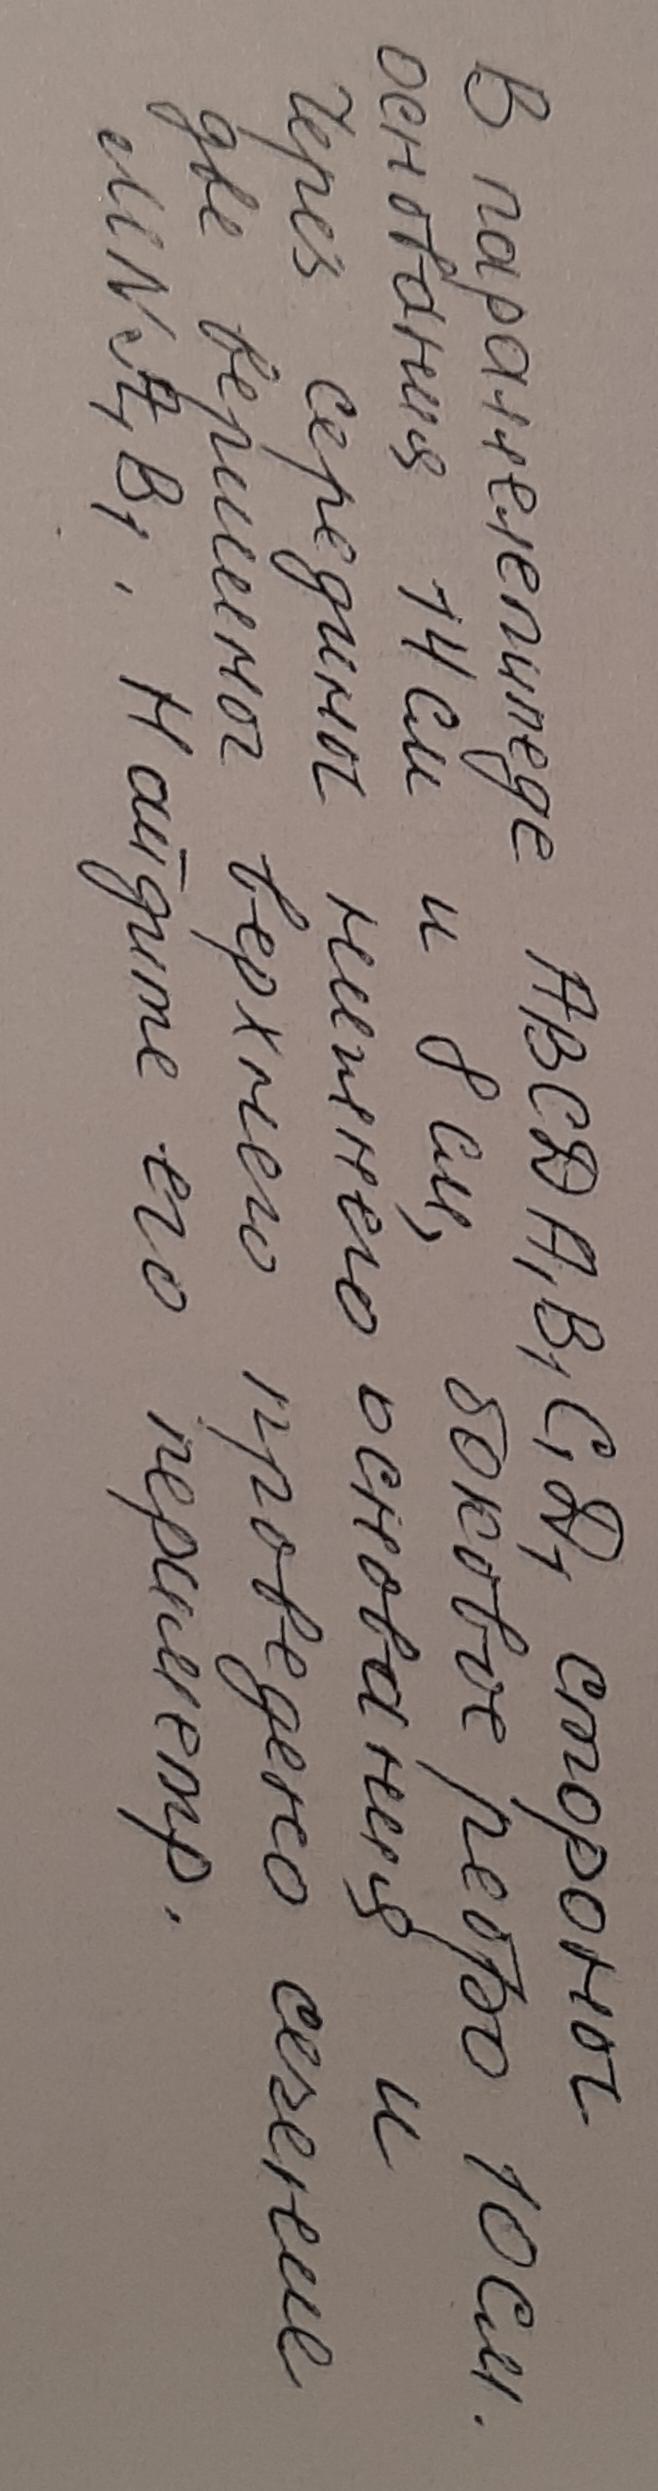 В параллелепипеде ABCDA₁B₁C₁D₁ стороны
основания 14 см и 8 см, боковое ребро 10 см.
Через середины нижнего основания и
две вершины верхнего проведено сечение
MNA₁B₁. Найдите его периметр.